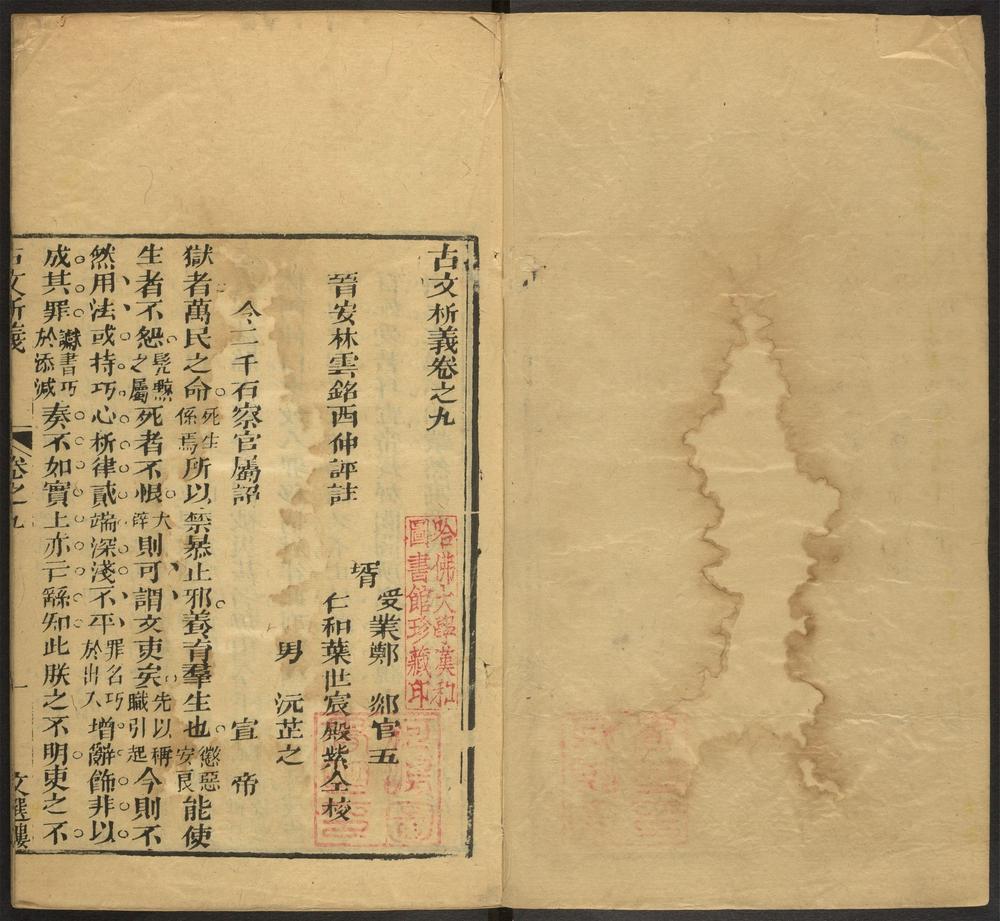 古文析義卷之九
晉安林雲銘西仲評註
受業鄭郯官五
壻仁和葉世宸殿紫仝校
男沅芷之
令二千石察官屬詔 宣帝
獄者萬民之命死生係焉所以禁暴止邪養育羣生也懲惡安良能使
生者不怨髠黥之屬死者不恨大辟則可謂文吏矣先以稱職引起今則不
然用法或持巧心析律貳端深淺不平罪名巧於出入增辭飾非以
成其罪讞書巧於添減奏不如實上亦亡繇知此朕之不明吏之不
古文析義 卷之九 一 文選樓
哈佛大學漢和圖書館珍藏印